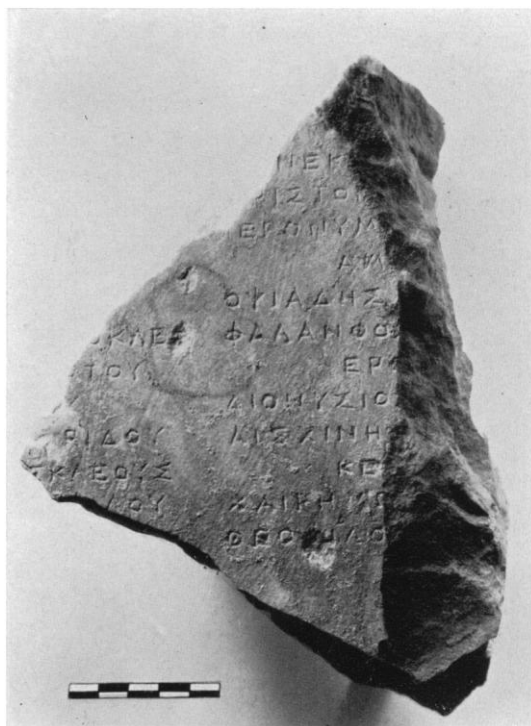 ΝΕΚ
ΡΙΣΤΟ
ΕΡΩΝΥΜ
ΟΚΛΕ ΦΑΛΑΝΘΟ
ΤΟΥ ΕΡ
ΔΙΟΝΥΣΙΟ
ΡΙΔΟΥ ΑΙΣΧΙΝΗ
ΚΛΕΟΥΣ ΚΕ
ΛΟΥ ΧΑΙΡΗΜΩ
ΘΕΟΦΙΛΟ